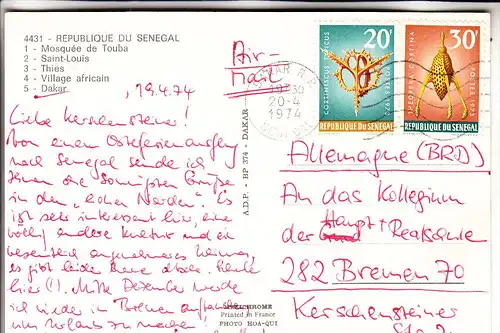 4431 - REPUBLIQUE DU SENEGAL
1 - Mosquée de Touba
2 - Saint-Louis
3 - Thies
4 - Village africain
5 - Dakar
Air-
mail
19.4.74
20F
30F
POSTES 1973
REPUBLIQUE DU SENEGAL
REPUBLIQUE DU SENEGAL
20-4
1974
Liebe Kerschensteiner!
Von einem Osterferienausflug
nach Senegal sende ich
Ihnen die sonnigsten Grüße
in den „hohen Norden". Es
ist sehr interessant hier, eine
völlig andere Kultur und ein
angenehmes
es gibt leider keine
hier (!). Mitte Dezember werde
ich wieder in Bremen auftauchen
um zu machen
A.D.P. - BP 374 - DAKAR
Printed in France
PHOTO HOA-QUI
Allemagne (BRD)
An das Kollegium
der Haupt + Realschule
282 Bremen 70
Kerschensteiner